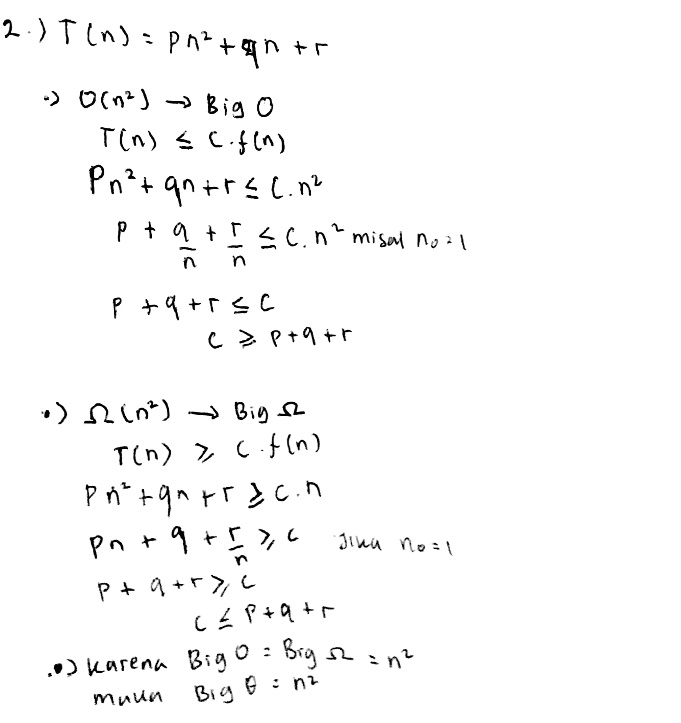 2.) T(n) = pn² + qn + r
•) O(n²) → Big O
T(n) ≤ C.f(n)
Pn² + qn + r ≤ C.n²
p + q/n + r/n ≤ C.n² misal n₀ = 1
p + q + r ≤ C
C ≥ p + q + r
•) Ω(n²) → Big Ω
T(n) ≥ C.f(n)
Pn² + qn + r ≥ C.n
pn + q + r/n ≥ C Jika n₀ = 1
p + q + r ≥ C
C ≤ p + q + r
•) karena Big O = Big Ω = n²
maka Big θ = n²